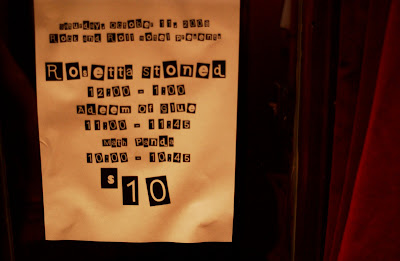 Saturday, October 11, 2008
Rock and Roll Hotel Presents
Rosetta Stoned
12:00 - 1:00
Adeem of Glue
11:00 - 11:45
Math Panda
10:00 - 10:45
$10